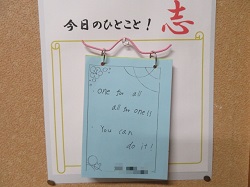 今日のひとこと！
志
one for all
all for one!!
You can
do it!